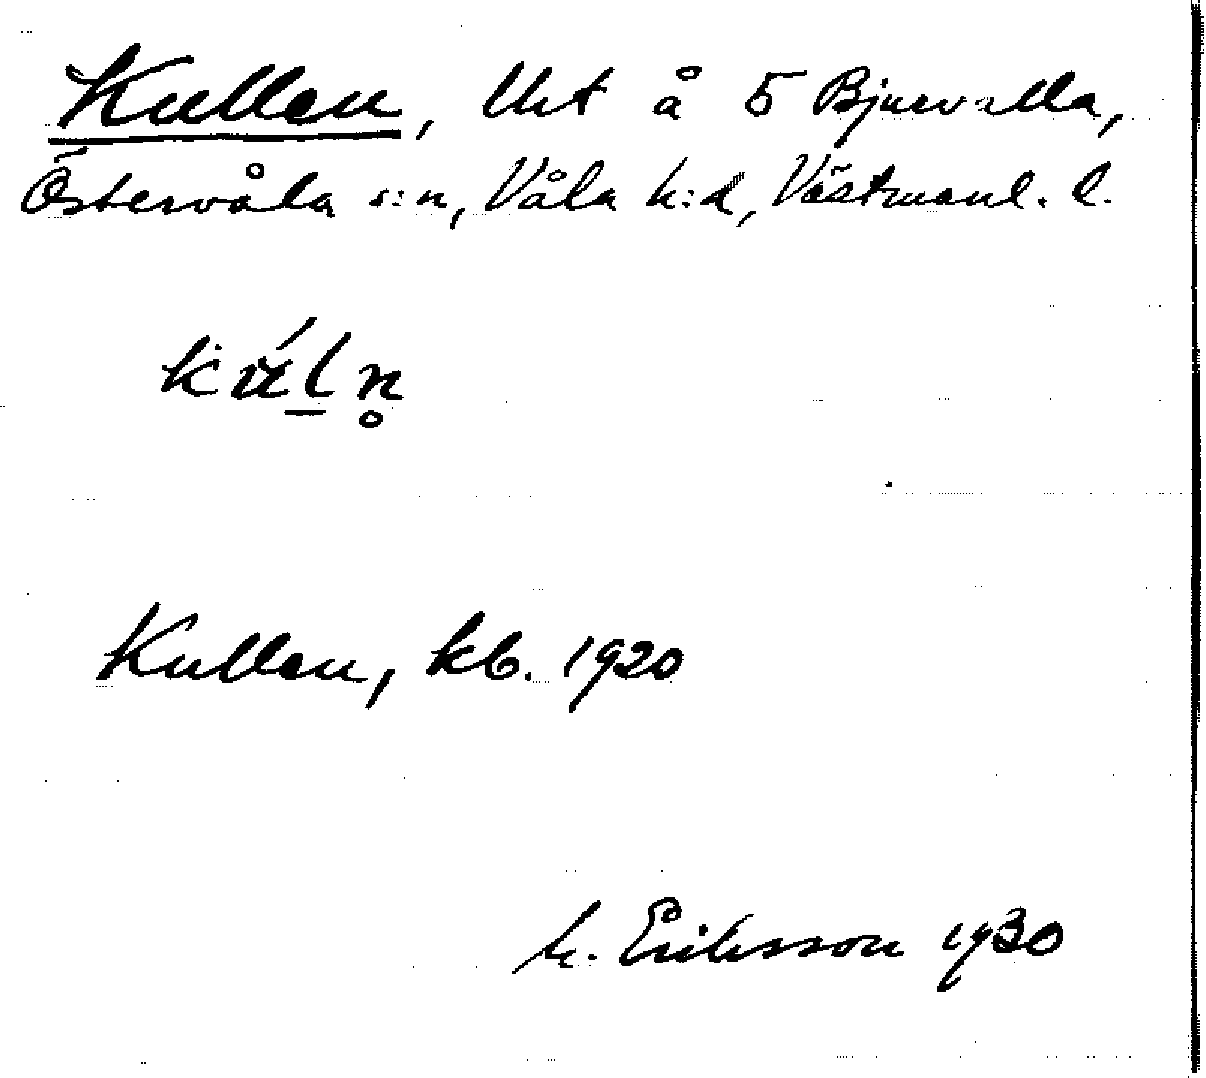 Kullen, lht å 5 Bjurvalla,
Östervåla s:n, Våla h:d, Västmanl. l.
Kullen, kb. 1920
M. Eriksson 1930